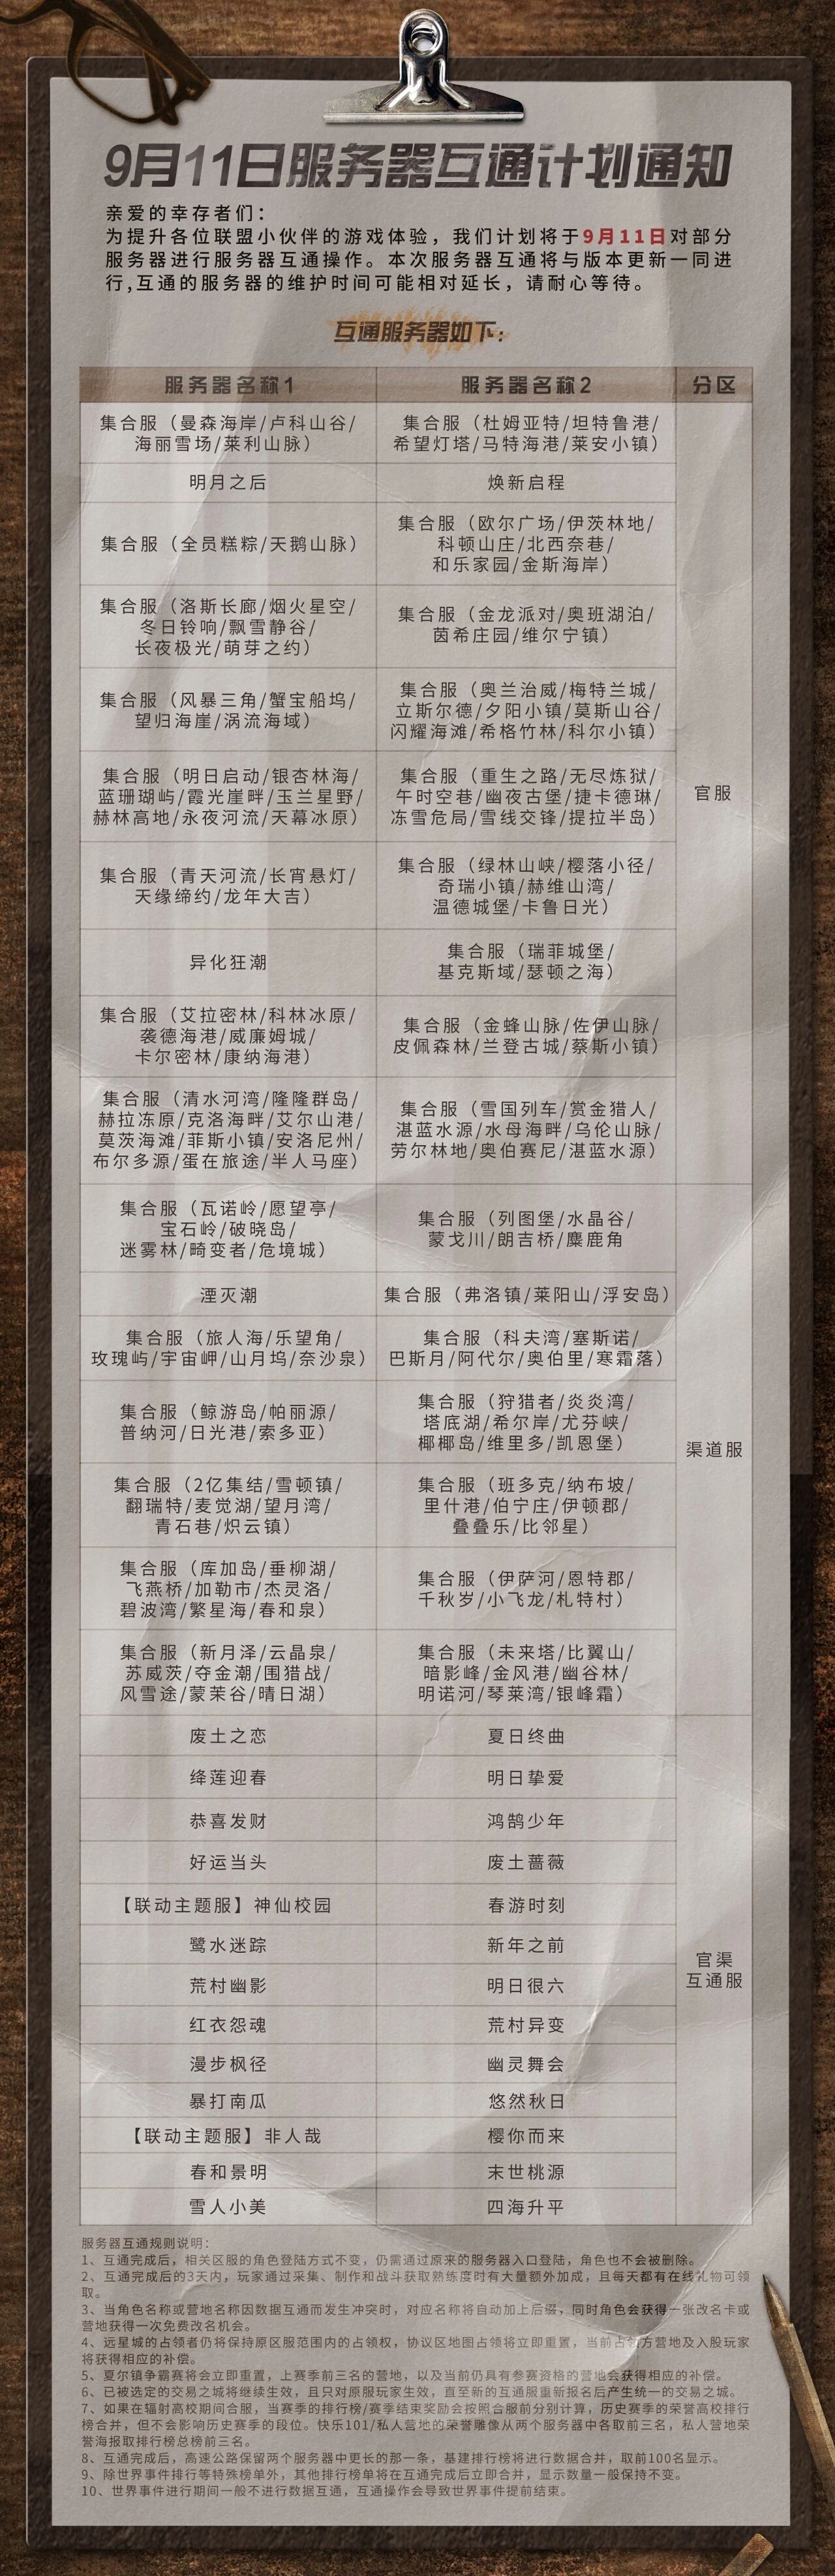 9月11日服务器互通计划通知
亲爱的幸存者们：
为提升各位联盟小伙伴的游戏体验，我们计划将于9月11日对部分
服务器进行服务器互通操作。本次服务器互通将与版本更新一同进
行,互通的服务器的维护时间可能相对延长，请耐心等待。
互通服务器如下：
服务器名称1 服务器名称2 分区
集合服（曼森海岸/卢科山谷/
海丽雪场/莱利山脉）
集合服（杜姆亚特/坦特鲁港/
希望灯塔/马特海港/莱安小镇）
明月之后 焕新启程
集合服（全员糕粽/天鹅山脉）
集合服（欧尔广场/伊茨林地/
科顿山庄/北西奈巷/
和乐家园/金斯海岸）
集合服（洛斯长廊/烟火星空/
冬日铃响/飘雪静谷/
长夜极光/萌芽之约）
集合服（金龙派对/奥班湖泊/
茵希庄园/维尔宁镇）
集合服（风暴三角/蟹宝船坞/
望归海崖/涡流海域）
集合服（奥兰治威/梅特兰城/
立斯尔德/夕阳小镇/莫斯山谷/
闪耀海滩/希格竹林/科尔小镇）
集合服（明日启动/银杏林海/
蓝珊瑚屿/霞光崖畔/玉兰星野/
赫林高地/永夜河流/天幕冰原）
集合服（重生之路/无尽炼狱/
午时空巷/幽夜古堡/捷卡德琳/
冻雪危局/雪线交锋/提拉半岛）
官服
集合服（青天河流/长宵悬灯/
天缘缔约/龙年大吉）
集合服（绿林山峡/樱落小径/
奇瑞小镇/赫维山湾/
温德城堡/卡鲁日光）
异化狂潮
集合服（瑞菲城堡/
基克斯域/瑟顿之海）
集合服（艾拉密林/科林冰原/
袭德海港/威廉姆城/
卡尔密林/康纳海港）
集合服（金蜂山脉/佐伊山脉/
皮佩森林/兰登古城/蔡斯小镇）
集合服（清水河湾/隆隆群岛/
赫拉冻原/克洛海畔/艾尔山港/
莫茨海滩/菲斯小镇/安洛尼州/
布尔多源/蛋在旅途/半人马座）
集合服（雪国列车/赏金猎人/
湛蓝水源/水母海畔/乌伦山脉/
劳尔林地/奥伯赛尼/湛蓝水源）
集合服（瓦诺岭/愿望亭/
宝石岭/破晓岛/
迷雾林/畸变者/危境城）
集合服（列图堡/水晶谷/
蒙戈川/朗吉桥/麋鹿角
湮灭潮 集合服（弗洛镇/莱阳山/浮安岛）
集合服（旅人海/乐望角/
玫瑰屿/宇宙岬/山月坞/奈沙泉）
集合服（科夫湾/塞斯诺/
巴斯月/阿代尔/奥伯里/寒霜落）
集合服（鲸游岛/帕丽源/
普纳河/日光港/索多亚）
集合服（狩猎者/炎炎湾/
塔底湖/希尔岸/尤芬峡/
椰椰岛/维里多/凯恩堡）
渠道服
集合服（2亿集结/雪顿镇/
翻瑞特/麦觉湖/望月湾/
青石巷/炽云镇）
集合服（班多克/纳布坡/
里什港/伯宁庄/伊顿郡/
叠叠乐/比邻星）
集合服（库加岛/垂柳湖/
飞燕桥/加勒市/杰灵洛/
碧波湾/繁星海/春和泉）
集合服（伊萨河/恩特郡/
千秋岁/小飞龙/札特村）
集合服（新月泽/云晶泉/
苏威茨/夺金潮/围猎战/
风雪途/蒙茉谷/晴日湖）
集合服（未来塔/比翼山/
暗影峰/金风港/幽谷林/
明诺河/琴莱湾/银峰霜）
废土之恋 夏日终曲
绛莲迎春 明日挚爱
恭喜发财 鸿鹄少年
好运当头 废土蔷薇
【联动主题服】神仙校园 春游时刻
鹭水迷踪 新年之前
官渠
互通服
荒村幽影 明日很六
红衣怨魂 荒村异变
漫步枫径 幽灵舞会
暴打南瓜 悠然秋日
【联动主题服】非人哉 樱你而来
春和景明 末世桃源
雪人小美 四海升平
服务器互通规则说明：
1、互通完成后，相关区服的角色登陆方式不变，仍需通过原来的服务器入口登陆，角色也不会被删除。
2、互通完成后的3天内，玩家通过采集、制作和战斗获取熟练度时有大量额外加成，且每天都有在线礼物可领
取。
3、当角色名称或营地名称因数据互通而发生冲突时，对应名称将自动加上后缀，同时角色会获得一张改名卡或
营地获得一次免费改名机会。
4、远星城的占领者仍将保持原区服范围内的占领权，协议区地图占领将立即重置，当前占领方营地及入股玩家
将获得相应的补偿。
5、夏尔镇争霸赛将会立即重置，上赛季前三名的营地，以及当前仍具有参赛资格的营地会获得相应的补偿。
6、已被选定的交易之城将继续生效，且只对原服玩家生效，直至新的互通服重新报名后产生统一的交易之城。
7、如果在辐射高校期间合服，当赛季的排行榜/赛季结束奖励会按照合服前分别计算，历史赛季的荣誉高校排行
榜合并，但不会影响历史赛季的段位。快乐101/私人营地的荣誉雕像从两个服务器中各取前三名，私人营地荣
誉海报取排行榜总榜前三名。
8、互通完成后，高速公路保留两个服务器中更长的那一条，基建排行榜将进行数据合并，取前100名显示。
9、除世界事件排行等特殊榜单外，其他排行榜单将在互通完成后立即合并，显示数量一般保持不变。
10、世界事件进行期间一般不进行数据互通，互通操作会导致世界事件提前结束。